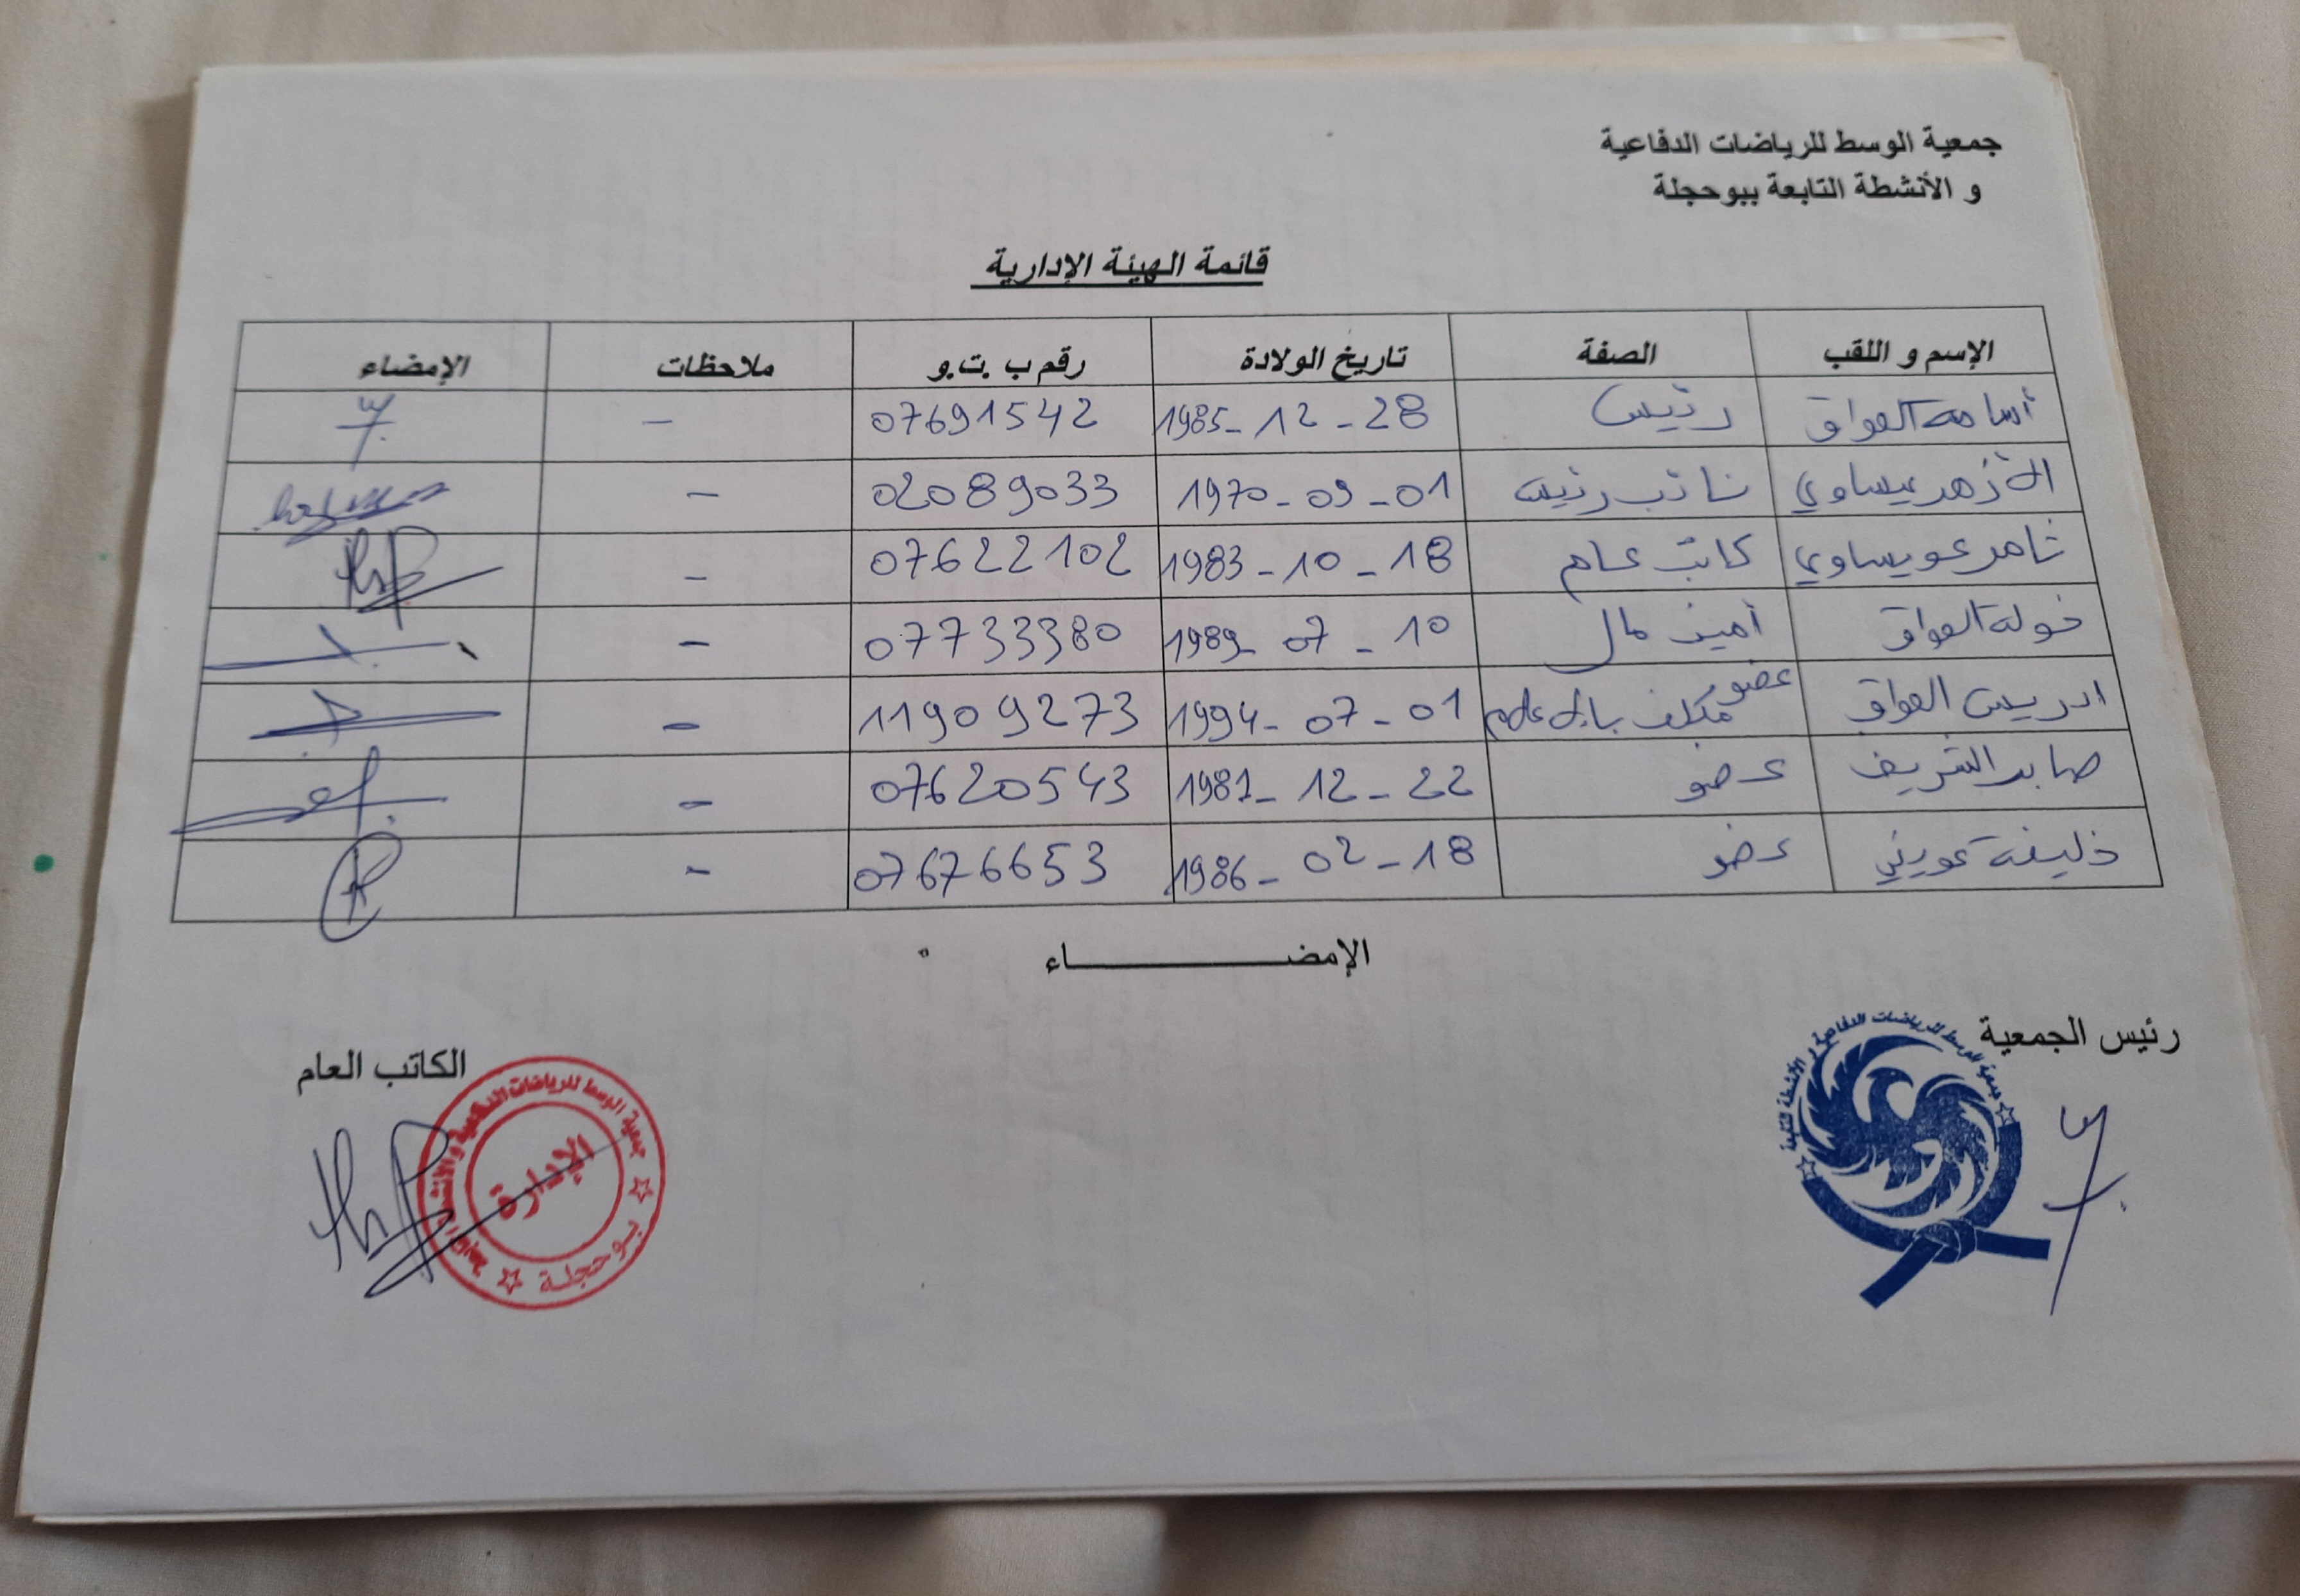 جمعية الوسط للرياضات الدفاعية
و الأنشطة التابعة ببوحجلة
قائمة الهيئة الإدارية
الإسم و اللقب الصفة تاريخ الولادة رقم ب .ت.و ملاحظات الإمضاء
أسامة العواق رئيس 28 - 12 - 1985 07691542 -
الأزهر عيساوي نائب رئيس 01 - 09 - 1970 02089033 -
ثامر عويساوي كاتب عام 18 - 10 - 1983 07622102 -
خولة العواق أمين مال 10 - 07 - 1989 07733380 -
ادريس العواق عضو مكلف بالإعلام 01 - 07 - 1994 11909273 -
صابر الشريف عضو 22 - 12 - 1981 07620543 -
خليفة عويني عضو 18 - 02 - 1986 07676653 -
الإمضـــــــــاء
رئيس الجمعية
الكاتب العام
جمعية الوسط للرياضات الدفاعية و الأنشطة التابعة
جمعية الوسط للرياضات الدفاعية و الأنشطة التابعة
الإدارة
بوحجلة